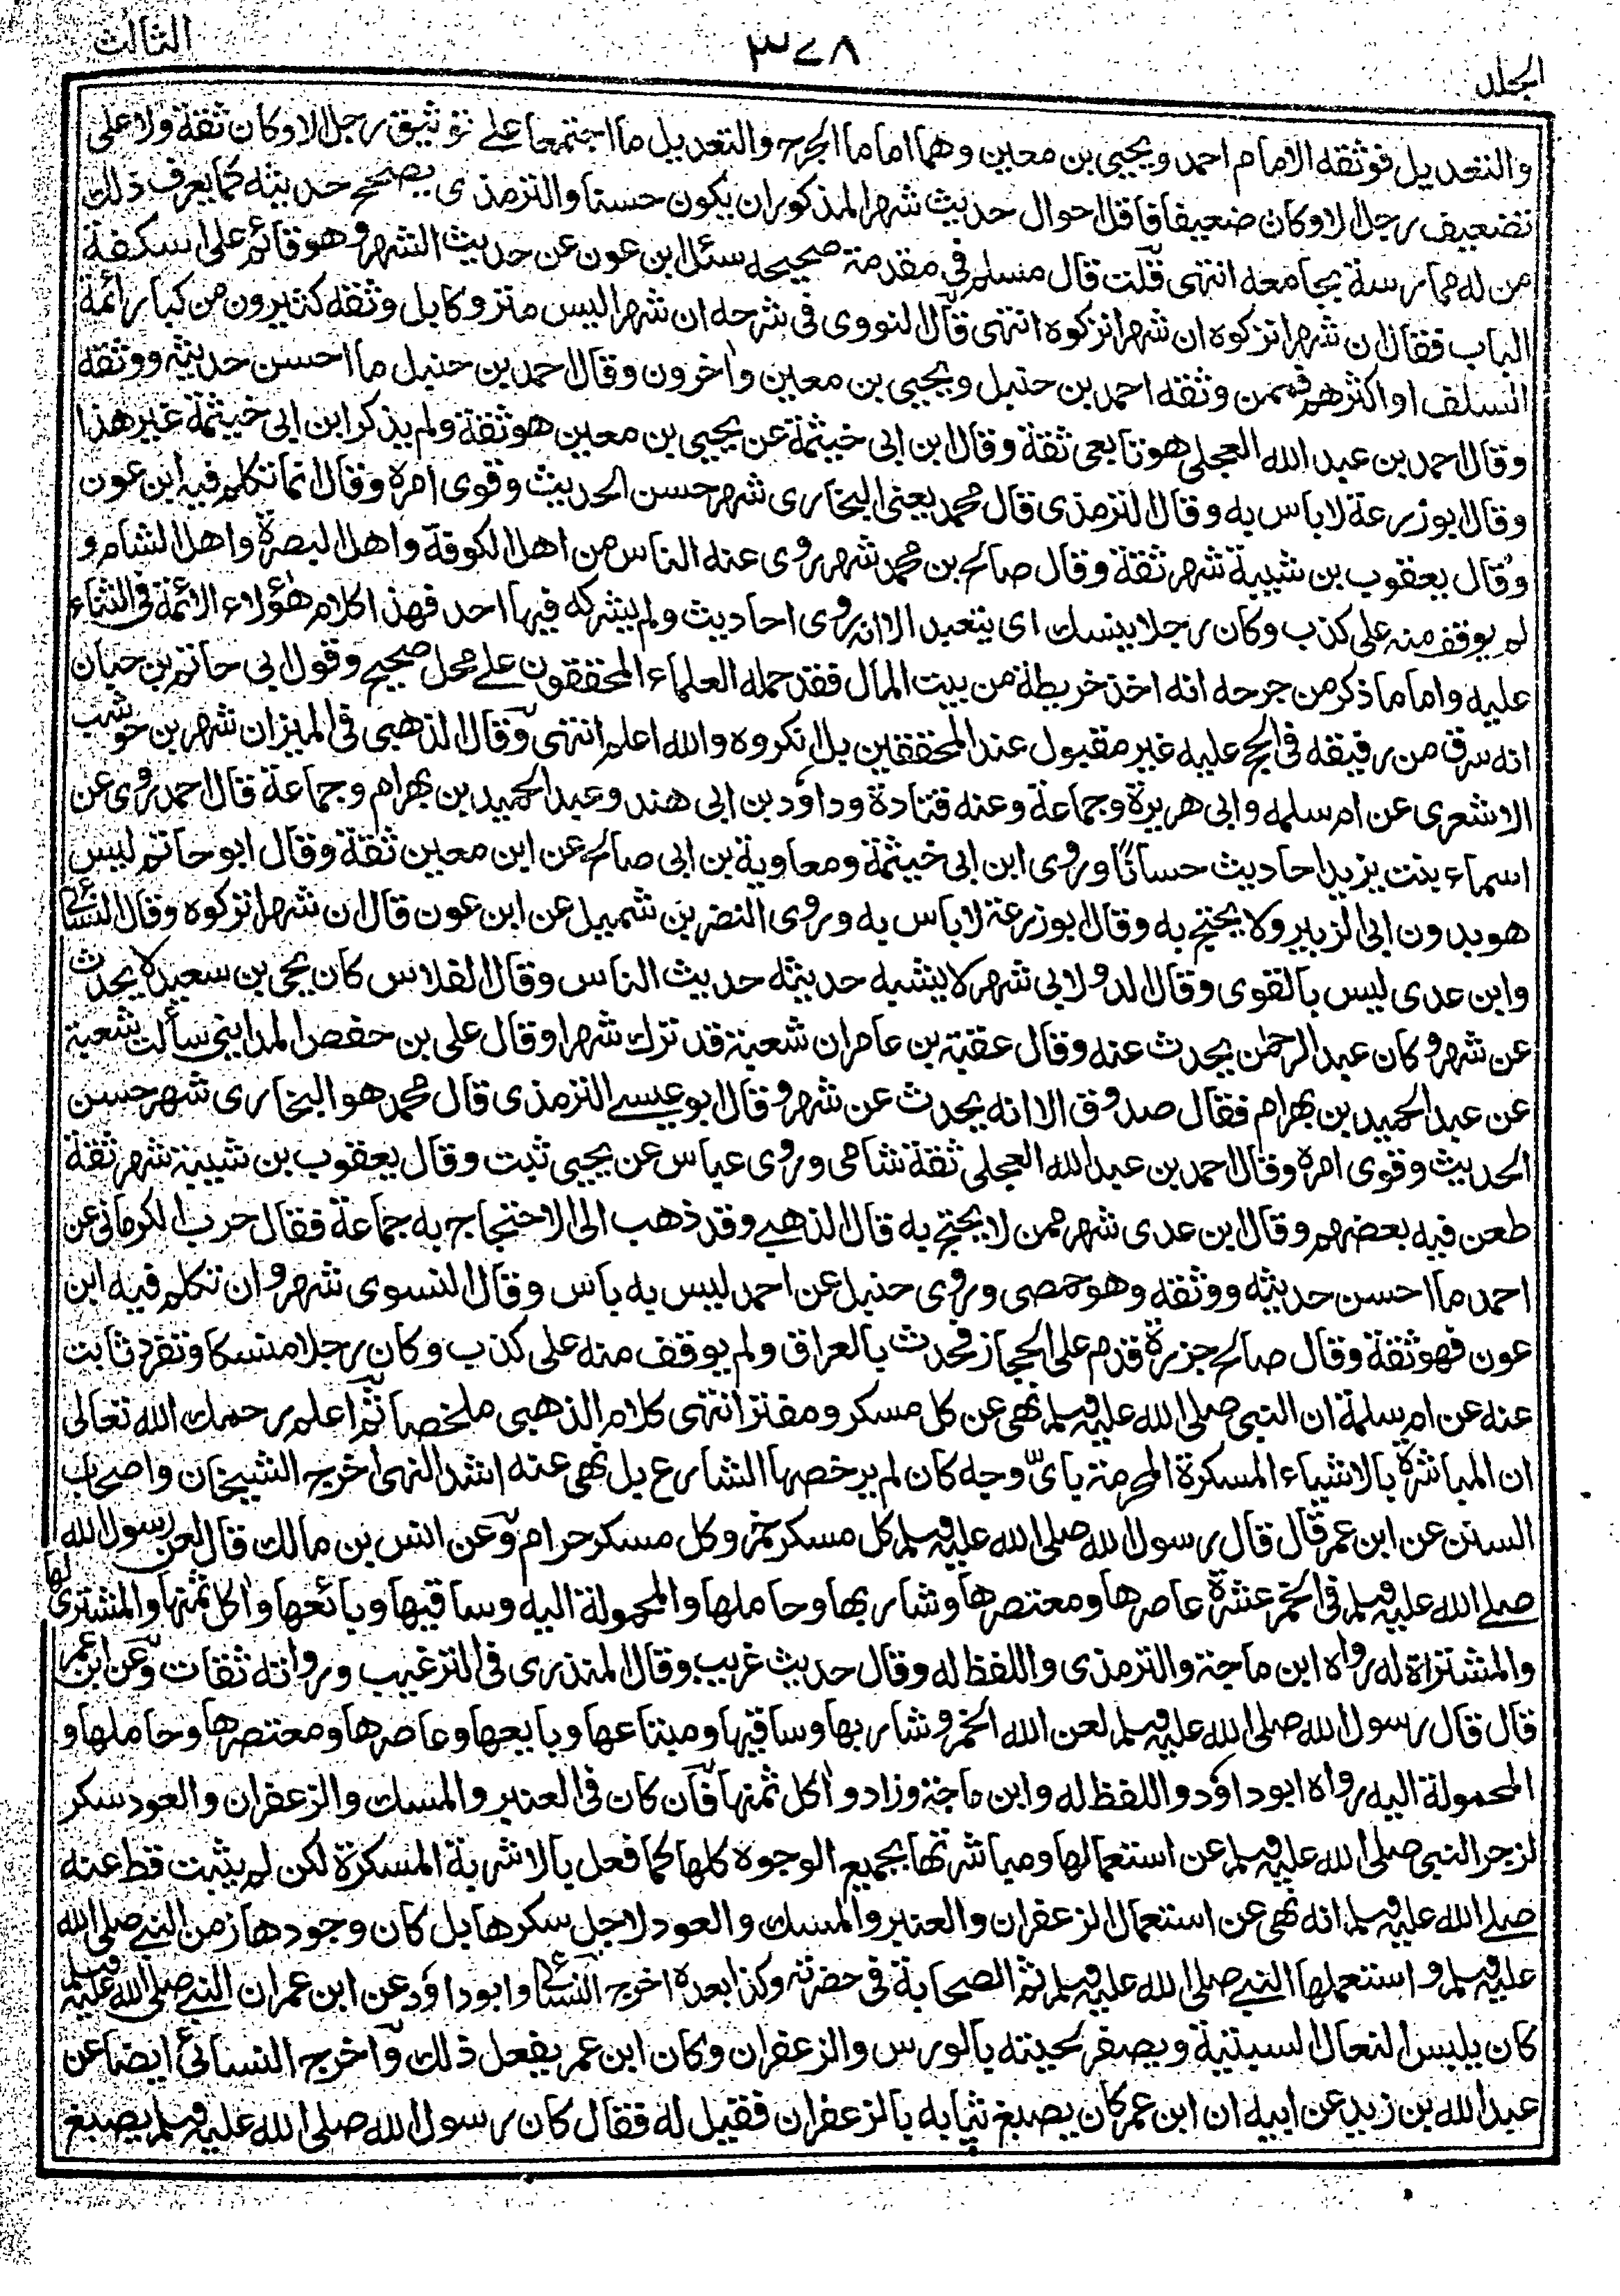 الجلد ٣٧٨ الثالث
والتعديل فوثقه الامام احمد ويحيى بن معين وهما اماما الجرح والتعديل ما اجتمعا على توثيق رجل الا وكان ثقة ولا على
تضعيف رجل الا وكان ضعيفا فاقل احوال حديث شهر المذكور ان يكون حسنا والترمذى يصحح حديثه كما يعرف ذلك
من له ممارسة بجامعه انتهى قلت قال مسلم فى مقدمة صحيحه سئل ابن عون عن حديث الشهر وهو قائم على اسكفة
الباب فقال ان شهرا نزكوه ان شهرا نزكوه انتهى قال النووى فى شرحه ان شهرا ليس متروكا بل وثقه كثيرون من كبار ائمة
السلف او اكثرهم فممن وثقه احمد بن حنبل ويحيى بن معين واٰخرون وقال احمد بن حنبل ما احسن حديثه ووثقه
وقال احمد بن عبد الله العجلى هو تابعى ثقة وقال ابن ابى خيثمة عن يحيى بن معين هو ثقة ولم يذكر ابن ابى خيثمة غير هذا
وقال ابو زرعة لا باس به وقال الترمذى قال محمد يعنى البخارى شهر حسن الحديث وقوى امره وقال انما تكلم فيه ابن عون
وقال يعقوب بن شيبة شهر ثقة وقال صالح بن محمد شهر روى عنه الناس من اهل الكوفة واهل البصرة واهل الشام و
لم يوقف منه على كذب وكان رجلا ينسك اى يتعبد الا انه روى احاديث ولم يشركه فيها احد فهذا كلام هؤلاء الائمة فى الثناء
عليه واما ما ذكر من جرحه انه اخذ خريطة من بيت المال فقد حمله العلماء المحققون على محمل صحيح وقول ابى حاتم بن حبان
انه سرق من رفيقه فى الحج عليه غير مقبول عند المحققين بل انكروه والله اعلم انتهى وقال الذهبى فى الميزان شهر بن حوشب
الاشعرى عن ام سلمه وابى هريرة وجماعة وعنه قتادة وداؤد بن ابى هند وعبد الحميد بن بهرام وجماعة قال احمد روى عن
اسماء بنت يزيد احاديث حسانًا وروى ابن ابى خيثمة ومعاوية بن ابى صالح عن ابن معين ثقة وقال ابو حاتم ليس
هو بدون ابى الزبير ولا يحتج به وقال ابو زرعة لا باس به وروى النضر بن شميل عن ابن عون قال ان شهرا نزكوه وقال النسائى
وابن عدى ليس بالقوى وقال الدولابى شهر لا يشبه حديثه حديث الناس وقال الفلاس كان يحيى بن سعيد لا يحدث
عن شهر وكان عبد الرحمٰن يحدث عنه وقال عقبة بن عامر ان شعبة قد ترك شهرا وقال على بن حفص المداينى سألت شعبة
عن عبد الحميد بن بهرام فقال صدوق الا انه يحدث عن شهر وقال ابو عيسے الترمذى قال محمد هو البخارى شهر حسن
الحديث وقوى امره وقال احمد بن عبد الله العجلى ثقة شامى وروى عباس عن يحيى ثبت وقال يعقوب بن شيبة شهر ثقة
طعن فيه بعضهم وقال ابن عدى شهر ممن لا يحتج به قال الذهبے وقد ذهب الى الاحتجاج به جماعة فقال حرب الكرمانى عن
احمد ما احسن حديثه ووثقه وهو حمصى وروى حنبل عن احمد ليس به باس وقال النسوى شهر وان تكلم فيه ابن
عون فهو ثقة وقال صالح جزرة قدم على الحجاز فحدث بالعراق ولم يوقف منه على كذب وكان رجلا متنسكا وتفرد ثابت
عنه عن ام سلمة ان النبى صلى الله عليه وسلم نهى عن كل مسكر ومفتر انتهى كلام الذهبى ملخصا ثم اعلم رحمك الله تعالى
ان المباشرة بالاشياء المسكرة المحرمة باىّ وجه كان لم يرخصها الشارع بل نهى عنه اشد النهى اخرج الشيخان واصحاب
السنن عن ابن عمر قال قال رسول الله صلى الله عليه وسلم كل مسكر خمر وكل مسكر حرام وعن انس بن مالك قال لعن رسول الله
صلے الله عليه وسلم فى الخمر عشرة عاصرها ومعتصرها وشاربها وحاملها والمحمولة اليه وساقيها وبائعها واٰكل ثمنها والمشترى لها
والمشتراة له رواه ابن ماجة والترمذى واللفظ له وقال حديث غريب وقال المنذرى فى الترغيب ورواته ثقات وعن ابن عمر
قال قال رسول الله صلى الله عليه وسلم لعن الله الخمر وشاربها وساقيها ومبتاعها وبايعها وعاصرها ومعتصرها وحاملها و
المحمولة اليه رواه ابو داؤد واللفظ له وابن ماجة وزاد واٰكل ثمنها فان كان فى العنبر والمسك والزعفران والعود سكر
لزجر النبى صلى الله عليه وسلم عن استعمالها ومباشرتها بجميع الوجوه كلها كما فعل بالاشربة المسكرة لكن لم يثبت قط عنه
صلے الله عليه وسلم انه نهى عن استعمال الزعفران والعنبر والمسك والعود لاجل سكرها بل كان وجودها زمن النبے صلى الله
عليه وسلم واستعملها النبے صلى الله عليه وسلم ثم الصحابة فى حضرته وكذا بعده اخرج النسائى وابو داؤد عن ابن عمر ان النبے صلى الله عليه وسلم
كان يلبس النعال السبتية ويصفر لحيته بالورس والزعفران وكان ابن عمر يفعل ذلك واخرج النسائى ايضا عن
عبد الله بن زيد عن ابيه ان ابن عمر كان يصبغ ثيابه بالزعفران فقيل له فقال كان رسول الله صلى الله عليه وسلم يصبغ